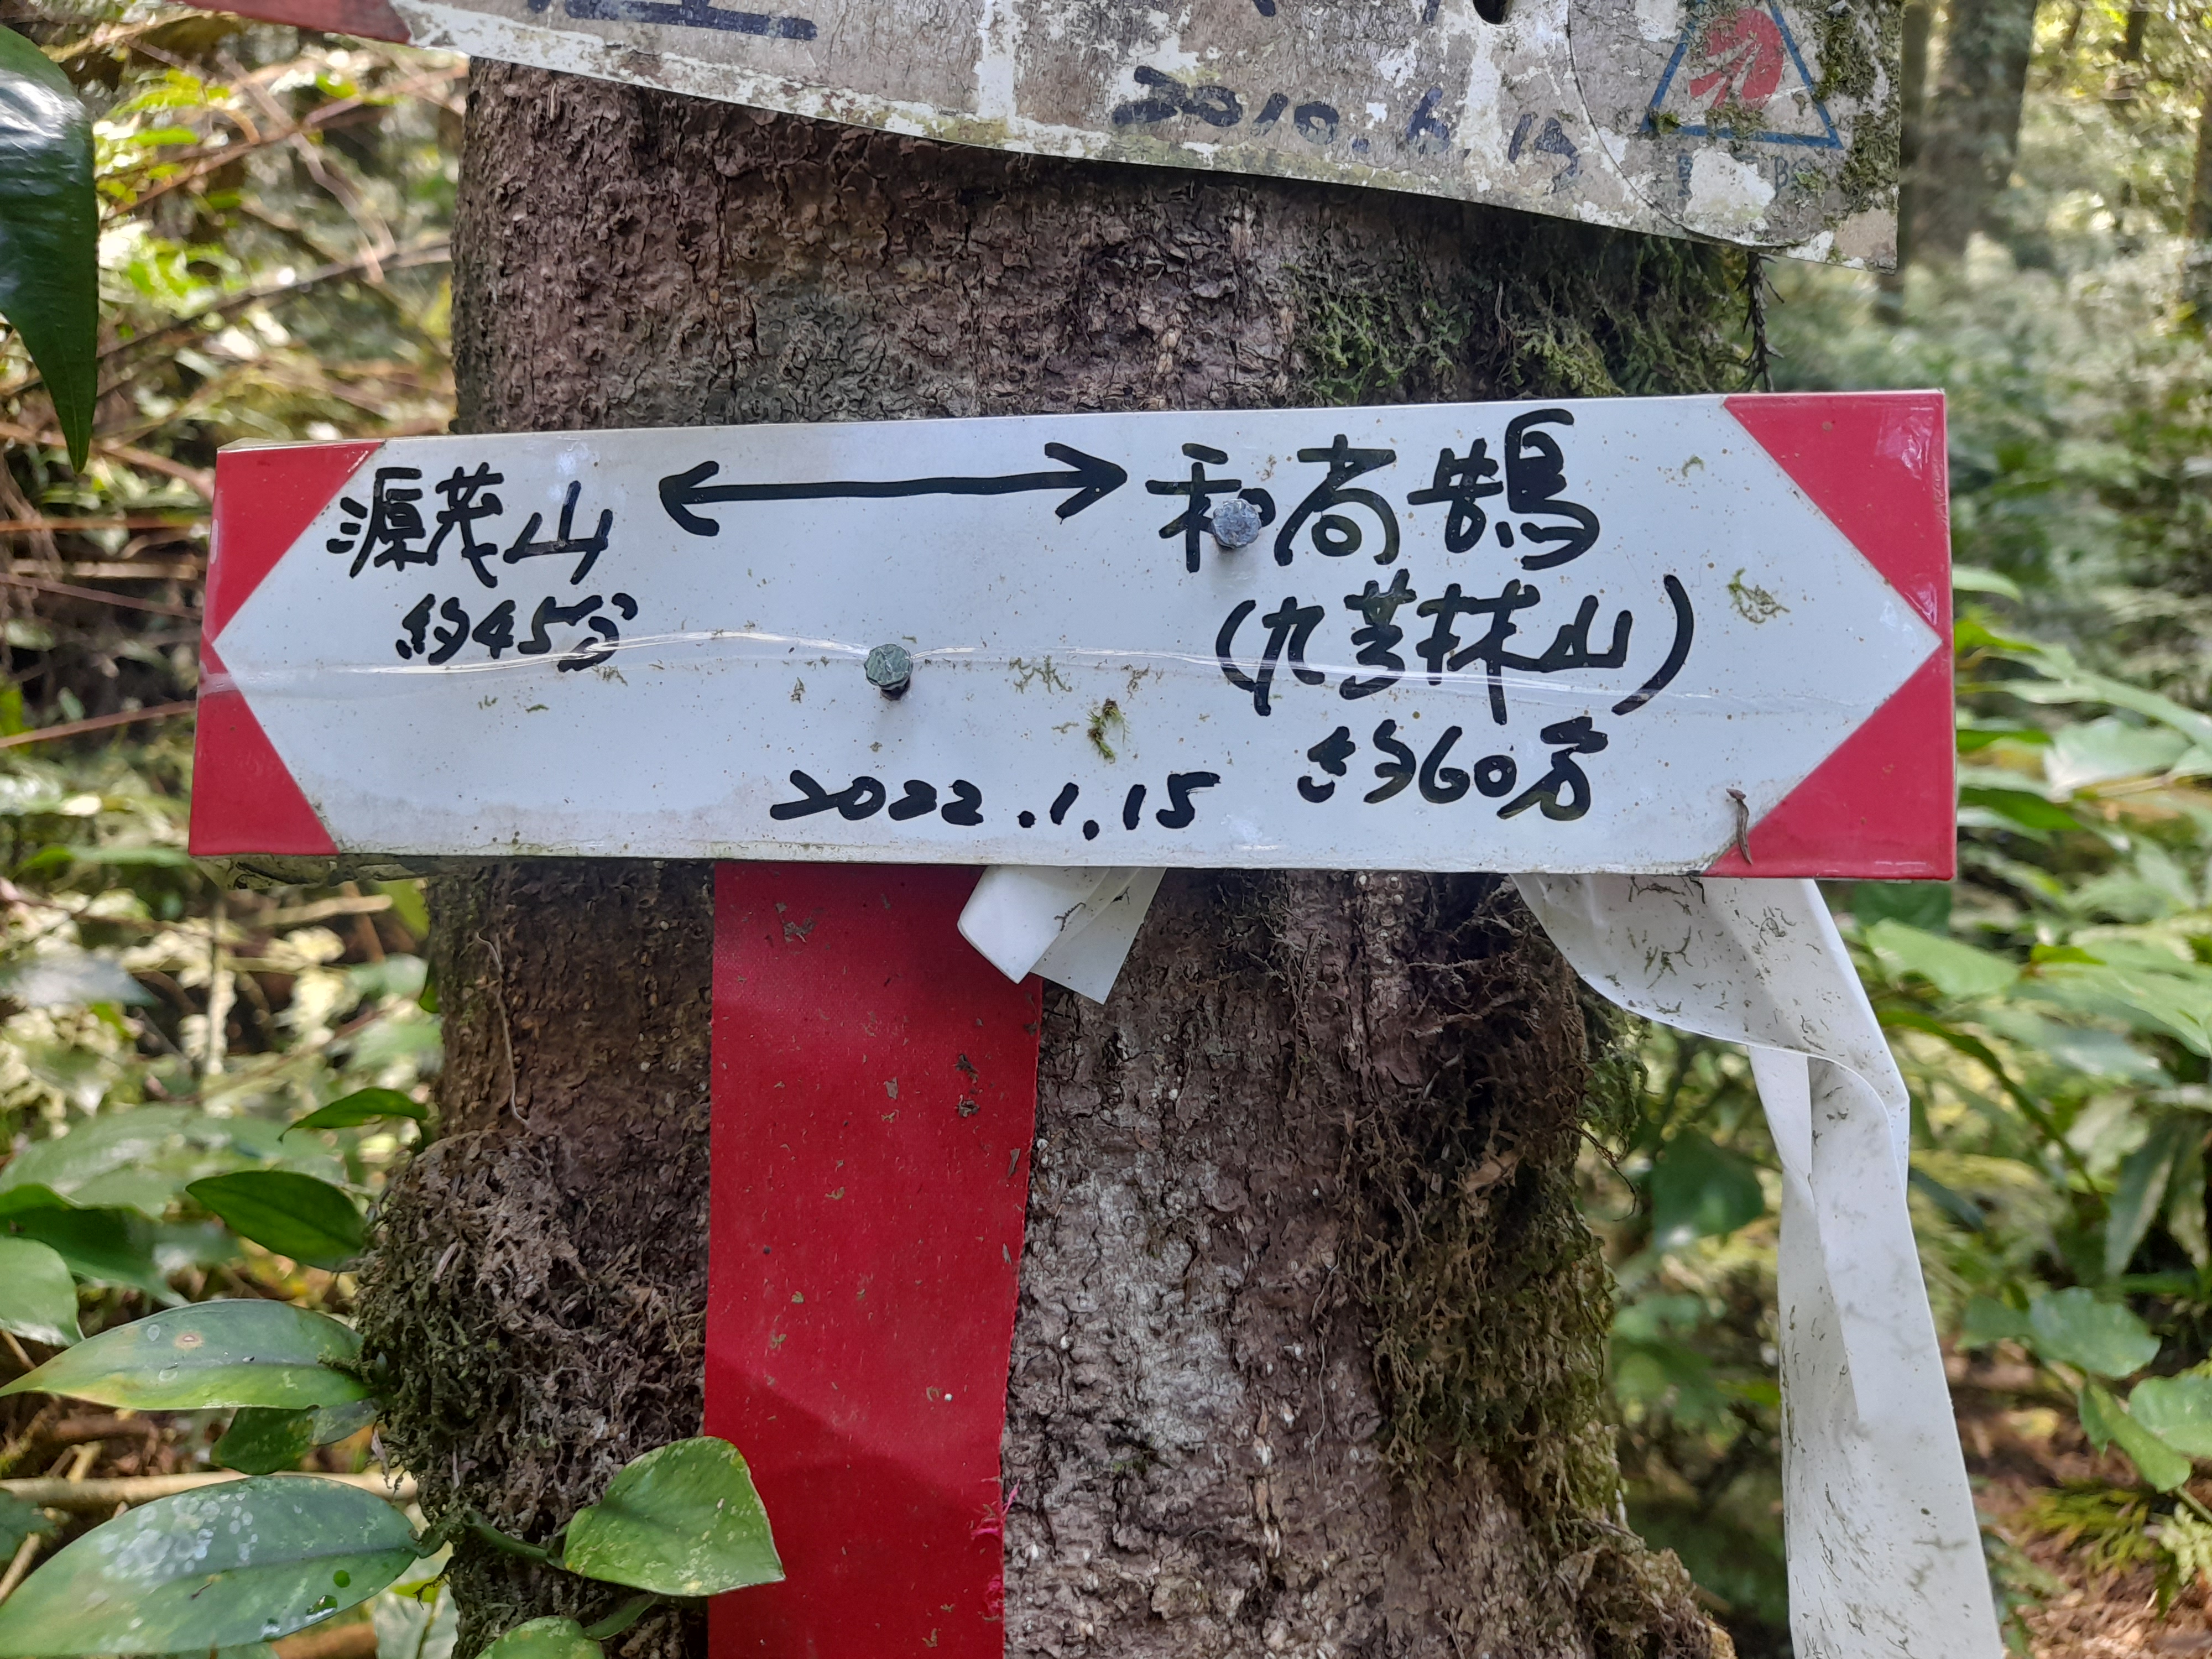 2010.6.13
源茂山 ←→ 和尚鵠
約45分
(九芎抹山)
約60分
2022.1.15